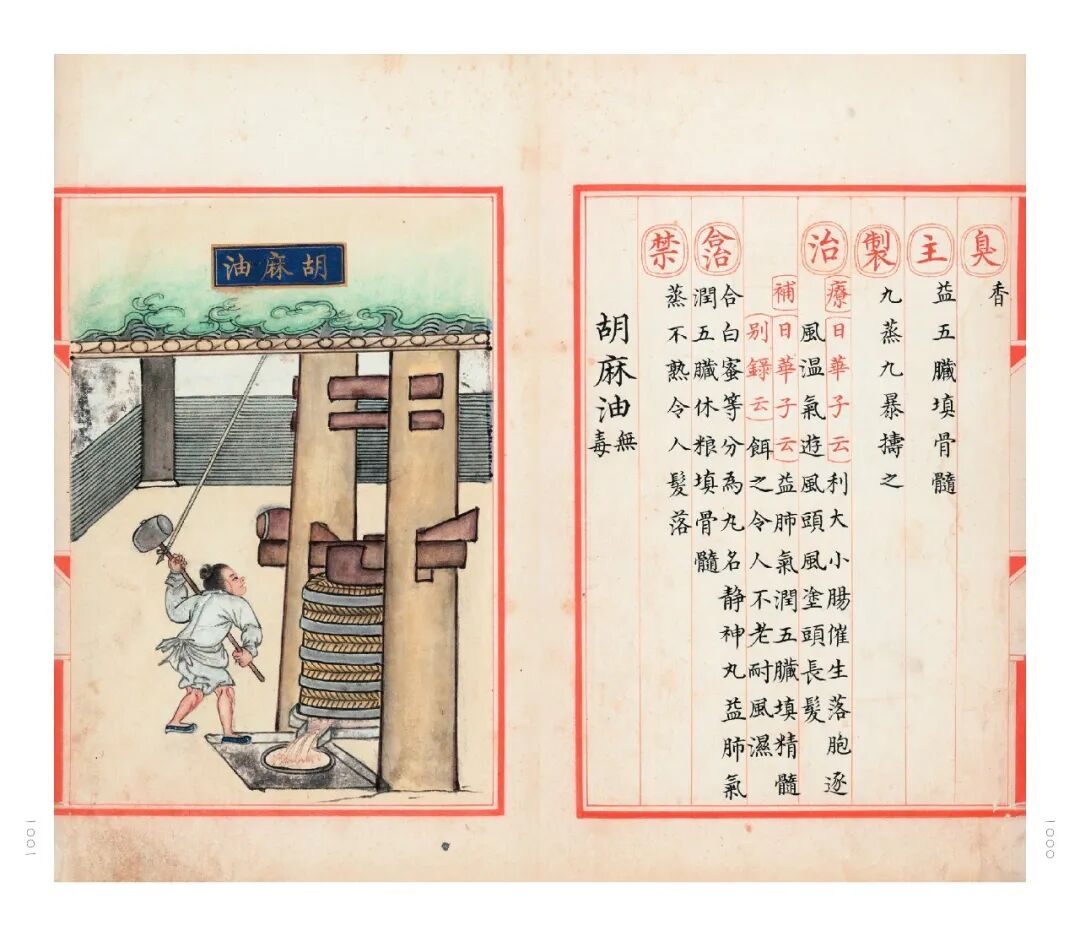 臭 香
主 益五臟填骨髓
製 九蒸九暴擣之
治 療日華子云利大小腸催生落胞逐
風温氣遊風頭風塗頭長髮
補日華子云益肺氣潤五臟填精髓
別錄云餌之令人不老耐風濕
合治 合白蜜等分為丸名静神丸益肺氣
潤五臟休粮填骨髓
禁 蒸不熟令人髮落
胡麻油無毒
胡麻油
1000
1001